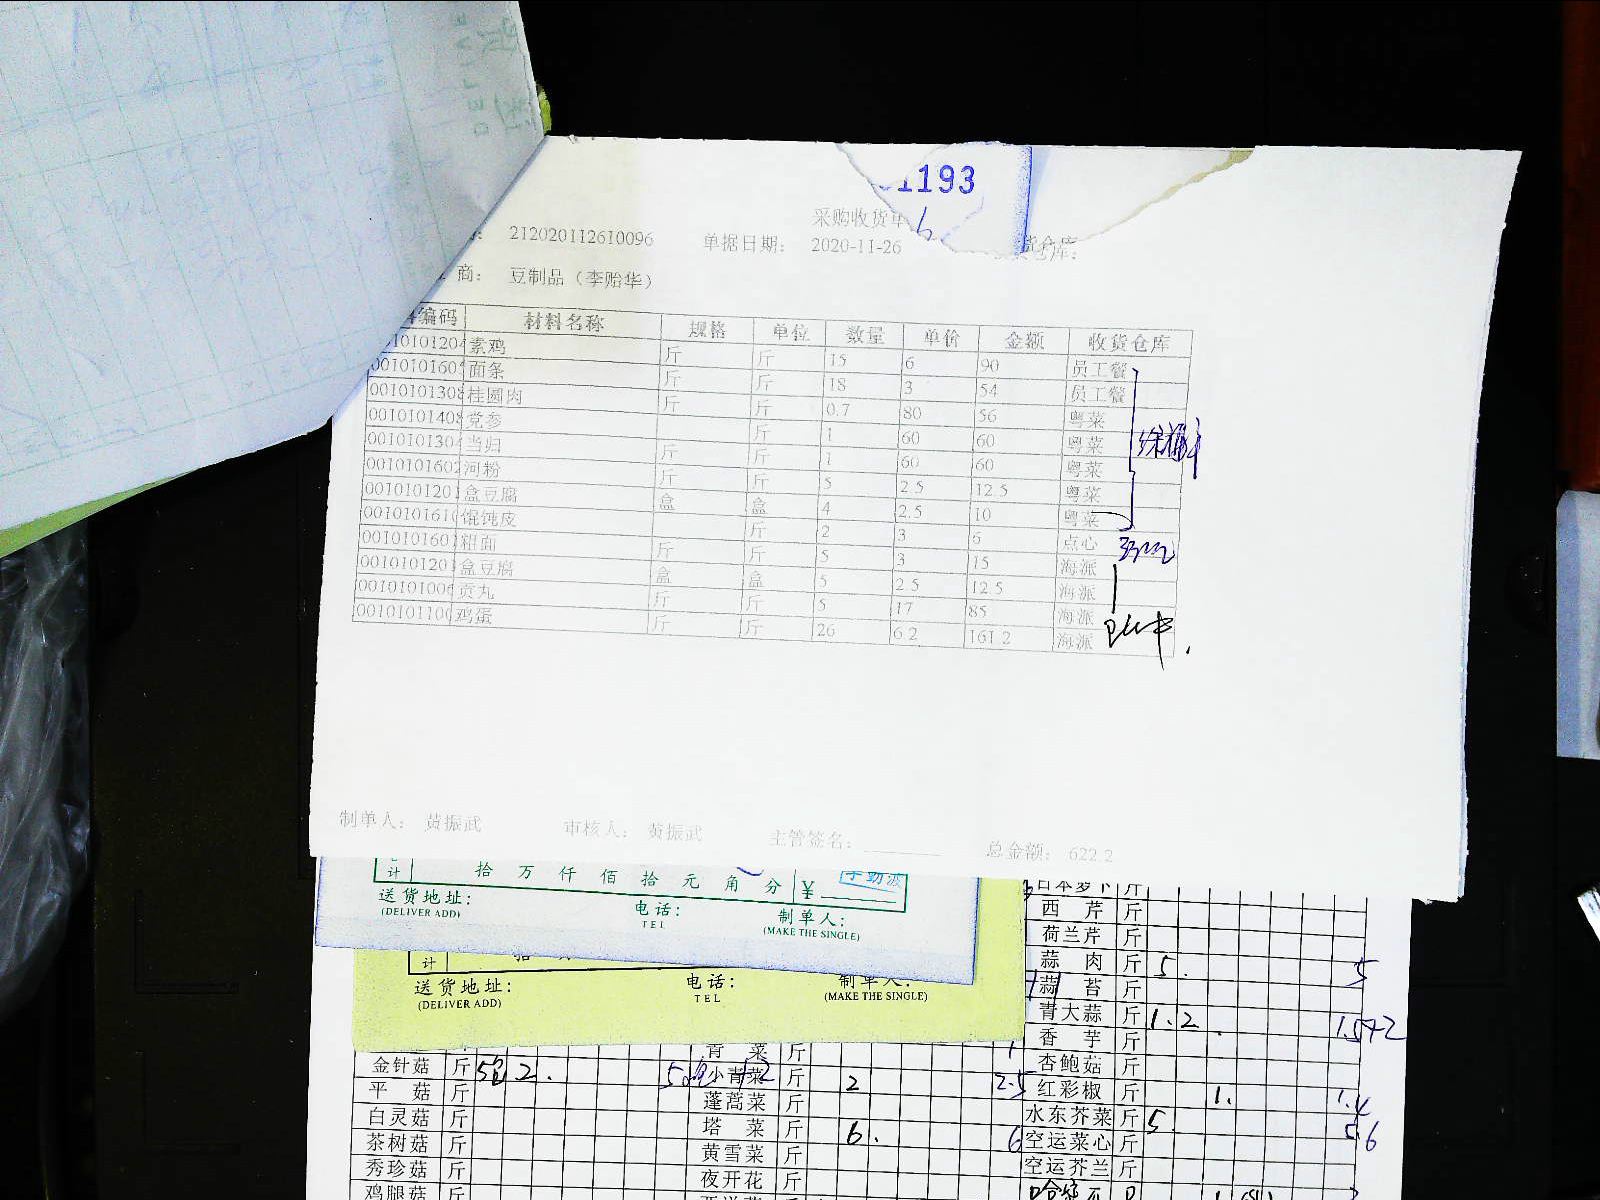 1193
6
采购收货单
212020112610096 单据日期: 2020-11-26 货仓库:
商: 豆制品（李贻华）
编码 材料名称 规格 单位 数量 单价 金额 收货仓库
0101012 素鸡 斤 斤 15 6 90 员工餐
001010160 面条 斤 斤 18 3 54 员工餐
001010130 桂圆肉 斤 斤 0.7 80 56 粤菜
001010140 党参 斤 1 60 60 粤菜
001010130 当归 斤 斤 1 60 60 粤菜
001010160 河粉 斤 斤 5 2.5 12.5 粤菜
001010120 盒豆腐 盒 盒 4 2.5 10 粤菜
001010161 馄饨皮 斤 2 3 6 点心
001010160 粗面 斤 斤 5 3 15 海派
001010120 盒豆腐 盒 盒 5 2.5 12.5 海派
001010100 贡丸 斤 斤 5 17 85 海派
001010110 鸡蛋 斤 斤 26 6.2 161.2 海派
制单人: 黄振武 审核人: 黄振武 主管签名: 总金额: 622.2
计 拾 万 仟 佰 拾 元 角 分 ¥
送货地址: 电话: 制单人:
(DELIVER ADD) TEL (MAKE THE SINGLE)
计
送货地址: 电话: 制单人:
(DELIVER ADD) TEL (MAKE THE SINGLE)
日本萝卜 斤
西 芹 斤
荷兰芹 斤
蒜 肉 斤 5. 5
蒜 苔 斤
青大蒜 斤 1.2
香 芋 斤
青 菜 斤 杏鲍菇 斤
金针菇 斤 小青菜 斤 2 2.5 红彩椒 斤 1.
平 菇 斤 蓬蒿菜 斤 水东芥菜 斤 5
白灵菇 斤 塔 菜 斤 6. 6 空运菜心 斤
茶树菇 斤 黄雪菜 斤 空运芥兰 斤
秀珍菇 斤 夜开花 斤
鸡腿菇 斤